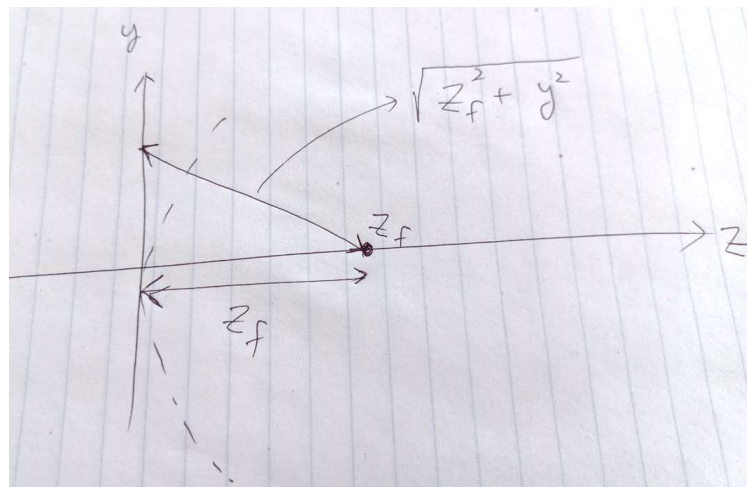 y
√(z_f² + y²)
z_f
z
z_f